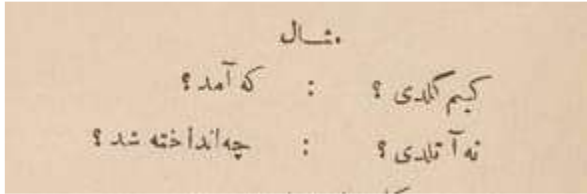 مثال
کیم گلدی ؟ : که آمد ؟
نه آتلدی ؟ : چه انداخته شد ؟